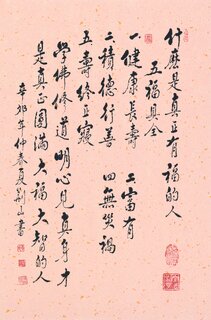 什麼是真正有福的人
五福具全
一健康長壽 二富有
二積德行善 四無災禍
五壽終正寢
學佛修道明心見真身才
是真正圓滿大福大智的人
辛卯年仲春夏荊山書